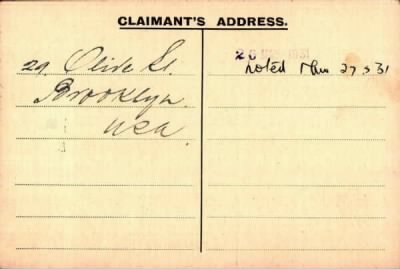 CLAIMANT'S ADDRESS.
29. Olive St.
Brooklyn.
USA.
1931
noted 27 5 31